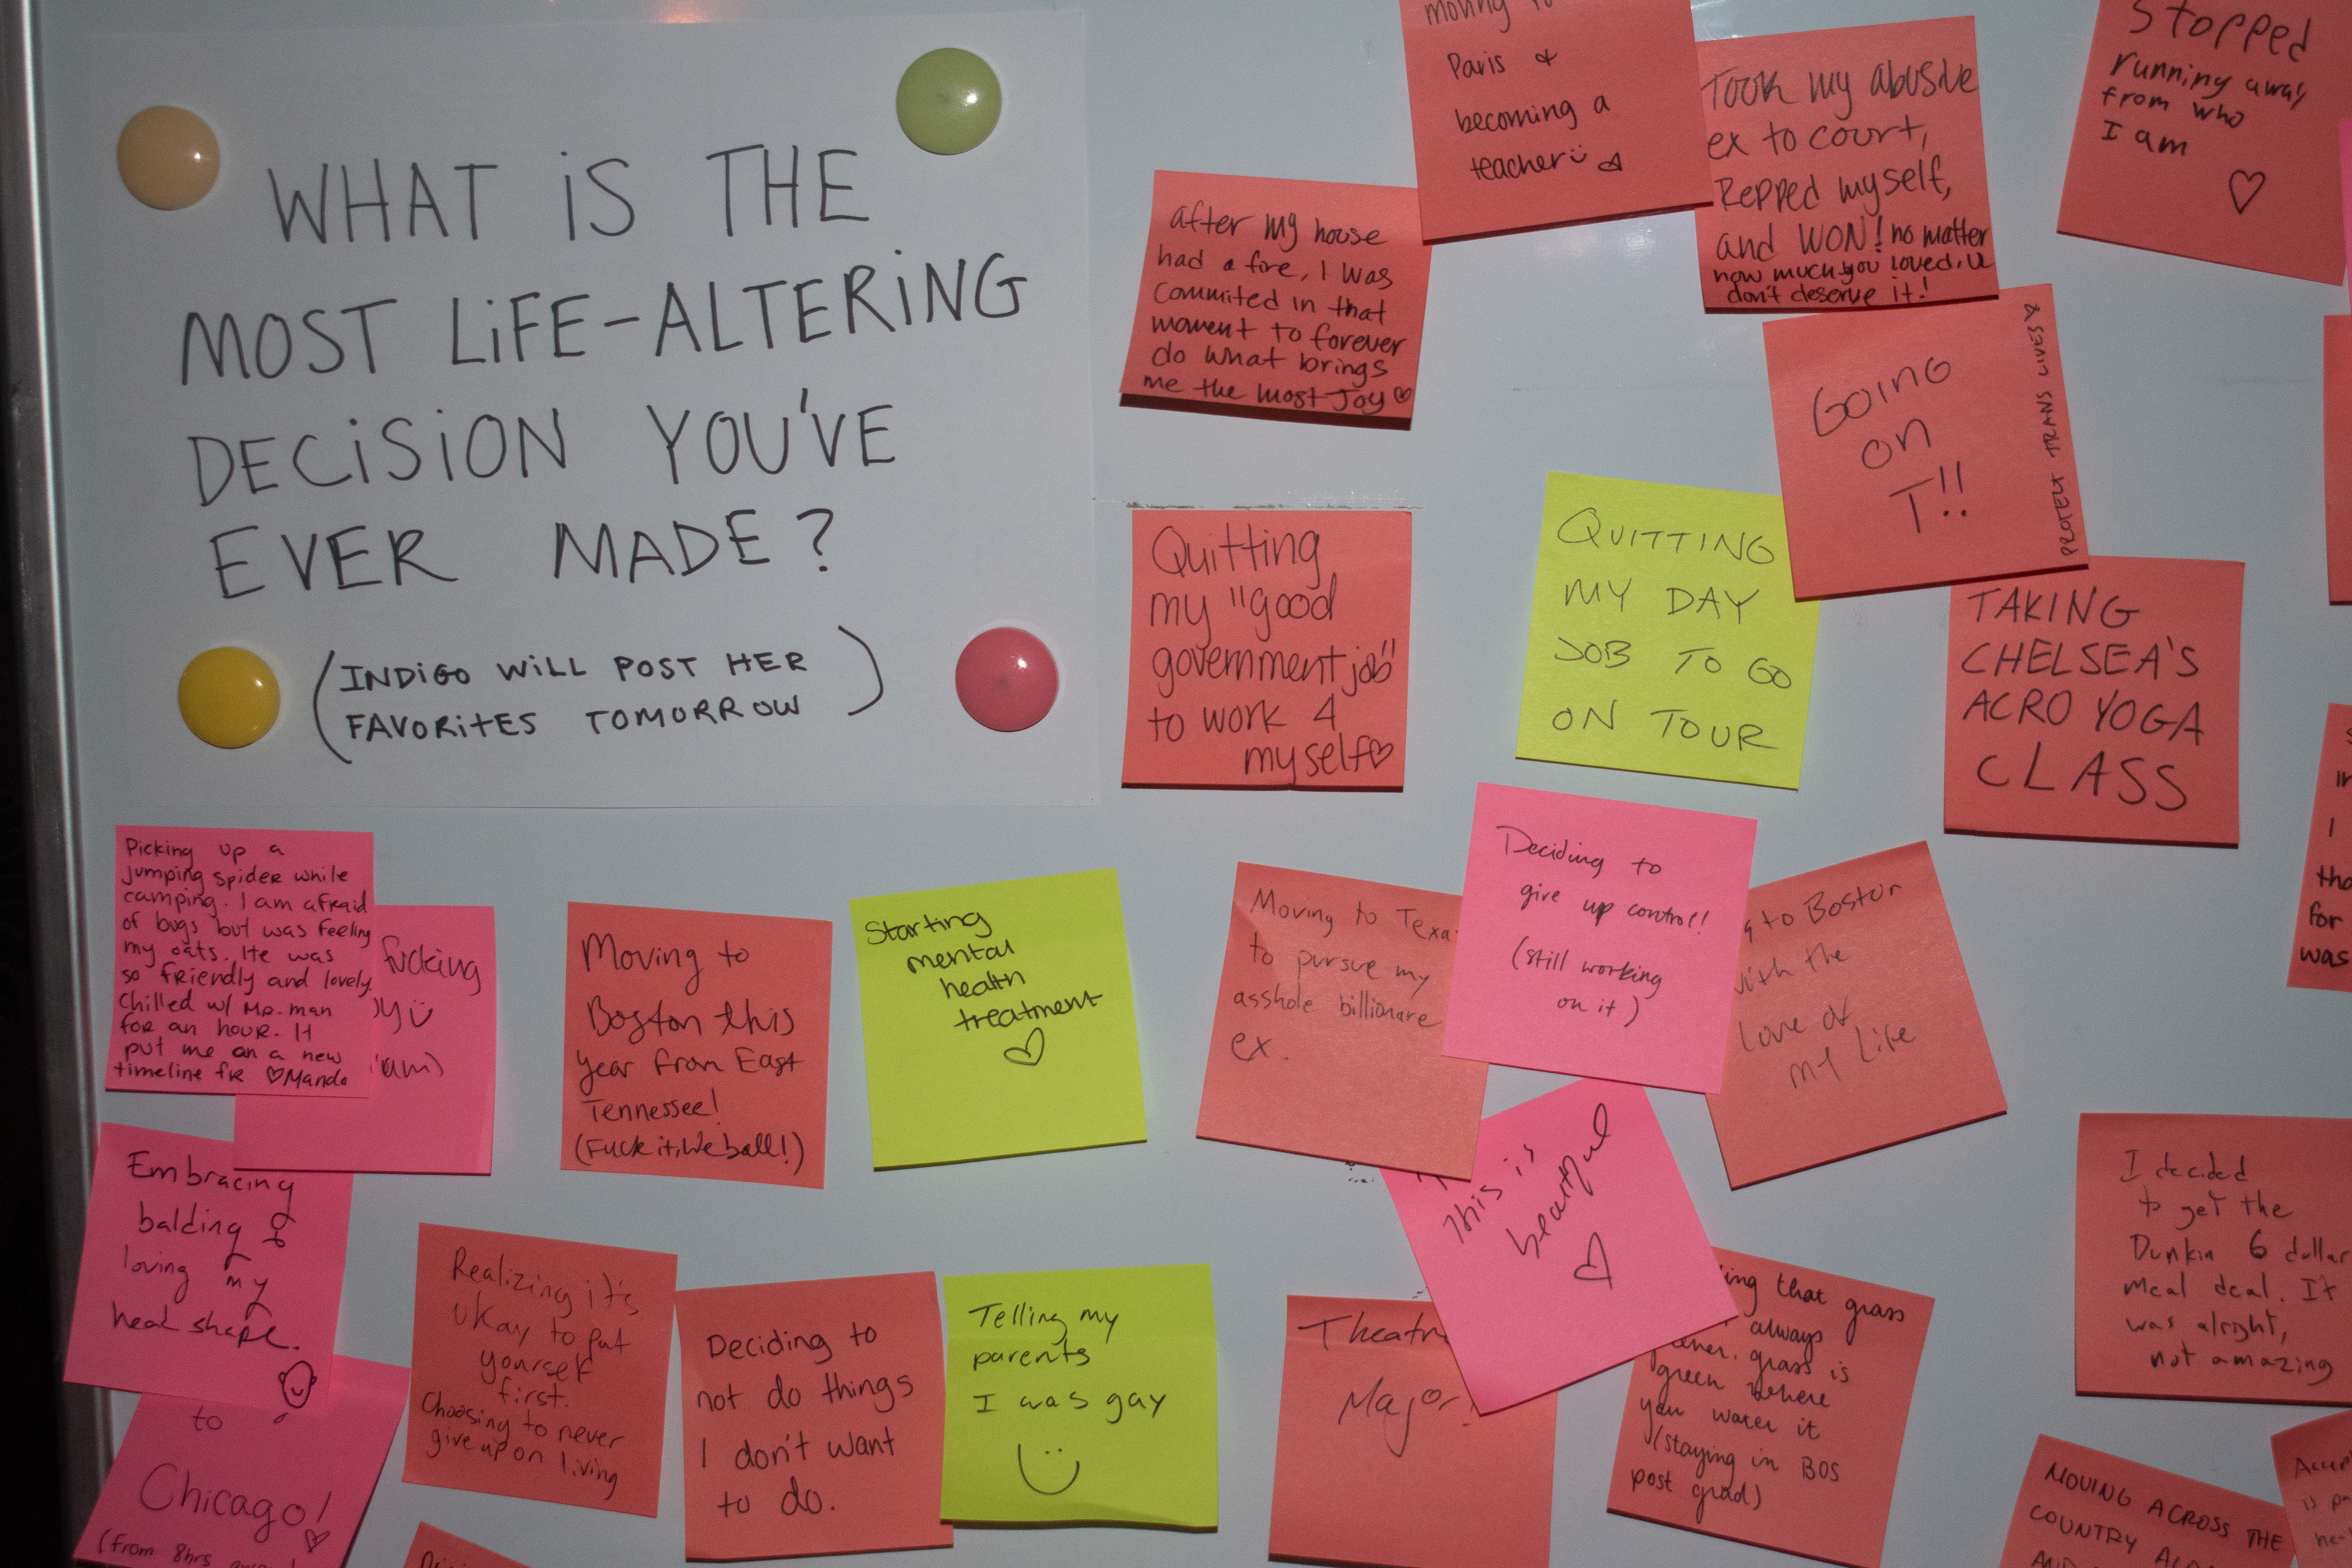 WHAT iS THE
MOST LiFE-ALTERiNG
DECiSiON YOU'VE
EVER MADE?
(INDiGO WiLL POST HER
FAVORiTES TOMORROW)
moving to
Paris &
becoming a
teacher
Took my abusive
ex to court,
Repped myself,
and WON! no matter
how much you loved, u
don't deserve it!
Stopped
running away
from who
I am
after my house
had a fire, I was
commited in that
moment to forever
do what brings
me the most Joy
GOING
on
T!!
PROTECT TRANS LIVES
Quitting
my "good
government job"
to work 4
myself
QUITTING
MY DAY
JOB TO GO
ON TOUR
TAKING
CHELSEA'S
ACRO YOGA
CLASS
Picking up a
jumping spider while
camping. I am afraid
of bugs but was feeling
my oats. He was
so friendly and lovely.
Chilled w/ Mr. man
for an hour. It
put me on a new
timeline fr
fucking
am)
Moving to
Boston this
year from East
Tennessee!
(Fuck it, We ball!)
Starting
mental
health
treatment
Moving to Texa
to pursue my
asshole billionare
ex.
Deciding to
give up control!
(still working
on it)
to Boston
with the
Love of
my Life
I
tha
for
was
Embracing
balding &
loving my
head shape.
This is
beautiful
I decided
to get the
Dunkin 6 dollar
meal deal. It
was alright,
not amazing
to
Chicago!
(from 8hrs
Realizing it's
okay to put
yourself
first.
Choosing to never
give up on living
Deciding to
not do things
I don't want
to do.
Telling my
parents
I was gay
Theatre
Major!
ing that grass
always
grass is
green where
you water it
(staying in BOS
post grad)
MOVING ACROSS THE
COUNTRY
AND
Accep
is